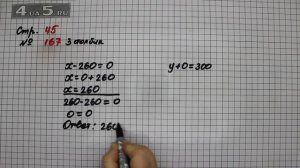 4PA5.RU
Стр. 45
№ 167 3 столбик
x-260=0
x=0+260
x=260
260-260=0
0=0
Ответ: 260
y+0=300